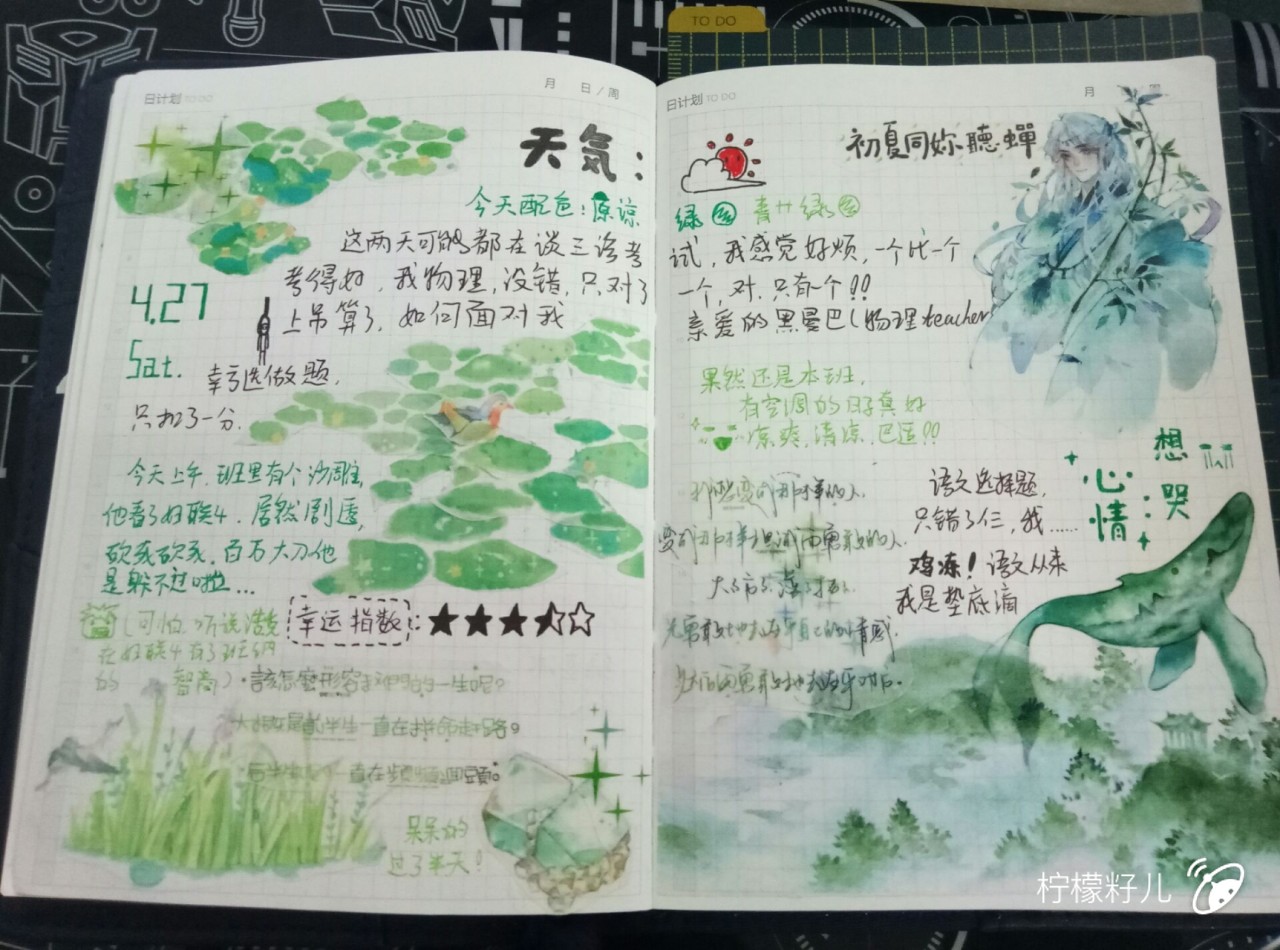 TO DO
日计划 TO DO
月 日/周
天気:
今天配色:原谅
这两天可能都在谈三语考
考得好,我物理,没错,只对了
上吊算了,如何面对我
4.27
Sat.
幸亏选做题,
只扣了一分.
今天上午,班里有个沙雕,
他看了妇联4,居然剧透,
砍死砍死,百万大刀他
是躲不过啦...
(可怕,听说浩克
在妇联4有了班纳
的 智商)
幸运指数:
該怎麼形容我們的一生呢?
一直在拼命走路
一直在頻頻回頭。
呆呆的
过了半天!
日计划 TO DO
月 周
初夏同妳聽蟬
绿色 青艹绿色
试,我感觉好烦,一个比一个
一个,对,只有一个!!
亲爱的黑曼巴(物理teacher
果然还是本班,
有空调的日子真好
凉爽,清凉,巴适!!
想哭
心情:
语文选择题,
只错了仨,我......
鸡冻!语文从来
我是垫底滴
柠檬籽儿